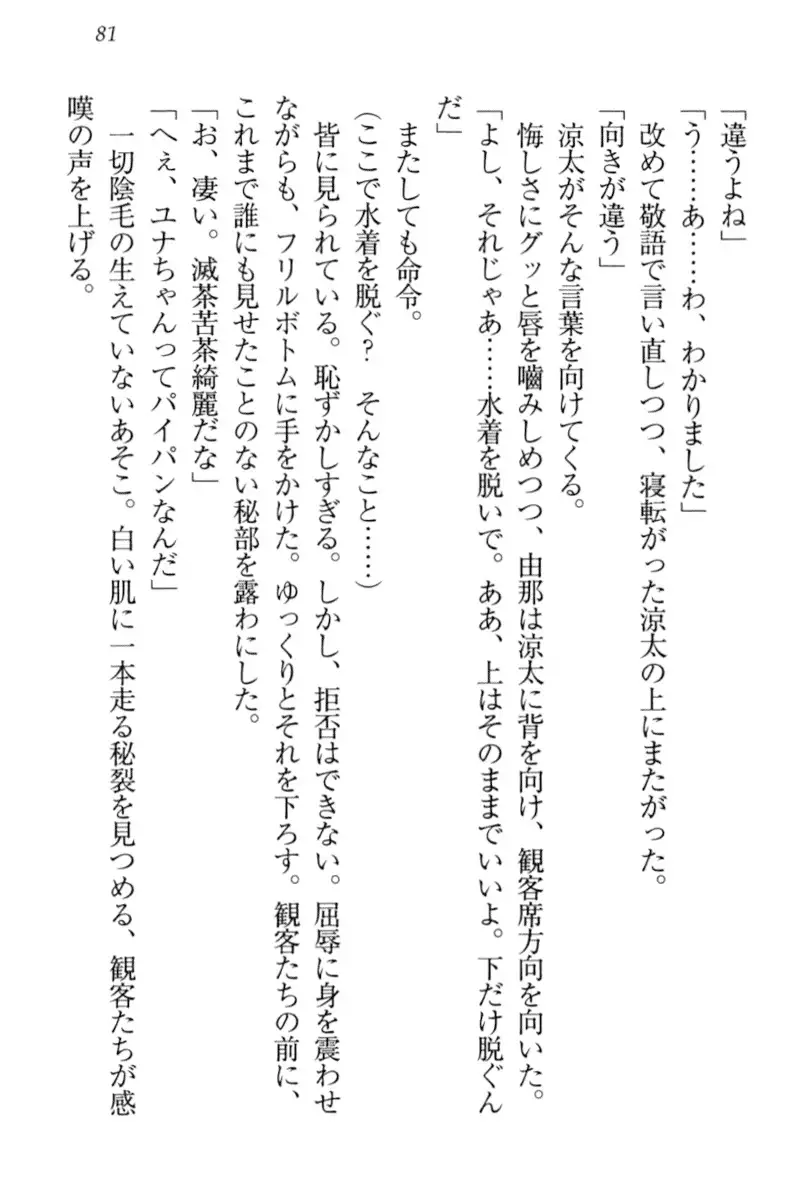 81
「違うよね」
「う……あ……わ、わかりました」
改めて敬語で言い直しつつ、寝転がった涼太の上にまたがった。
「向きが違う」
涼太がそんな言葉を向けてくる。
悔しさにグッと唇を嚙みしめつつ、由那は涼太に背を向け、観客席方向を向いた。
「よし、それじゃあ……水着を脱いで。ああ、上はそのままでいいよ。下だけ脱ぐん
だ」
またしても命令。
(ここで水着を脱ぐ?　そんなこと……)
皆に見られている。恥ずかしすぎる。しかし、拒否はできない。屈辱に身を震わせ
ながらも、フリルボトムに手をかけた。ゆっくりとそれを下ろす。観客たちの前に、
これまで誰にも見せたことのない秘部を露わにした。
「お、凄い。滅茶苦茶綺麗だな」
「へぇ、ユナちゃんってパイパンなんだ」
一切陰毛の生えていないあそこ。白い肌に一本走る秘裂を見つめる、観客たちが感
嘆の声を上げる。